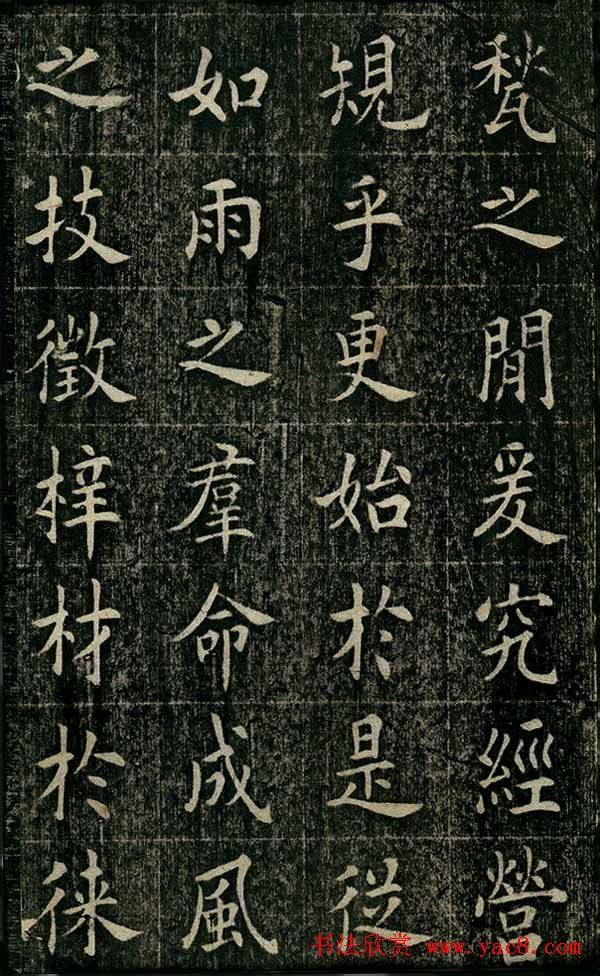 甃之閒爰究經營
規乎更始於是從
如雨之羣命成風
之技徵梓材於徠
书法欣赏 www.yac8.com